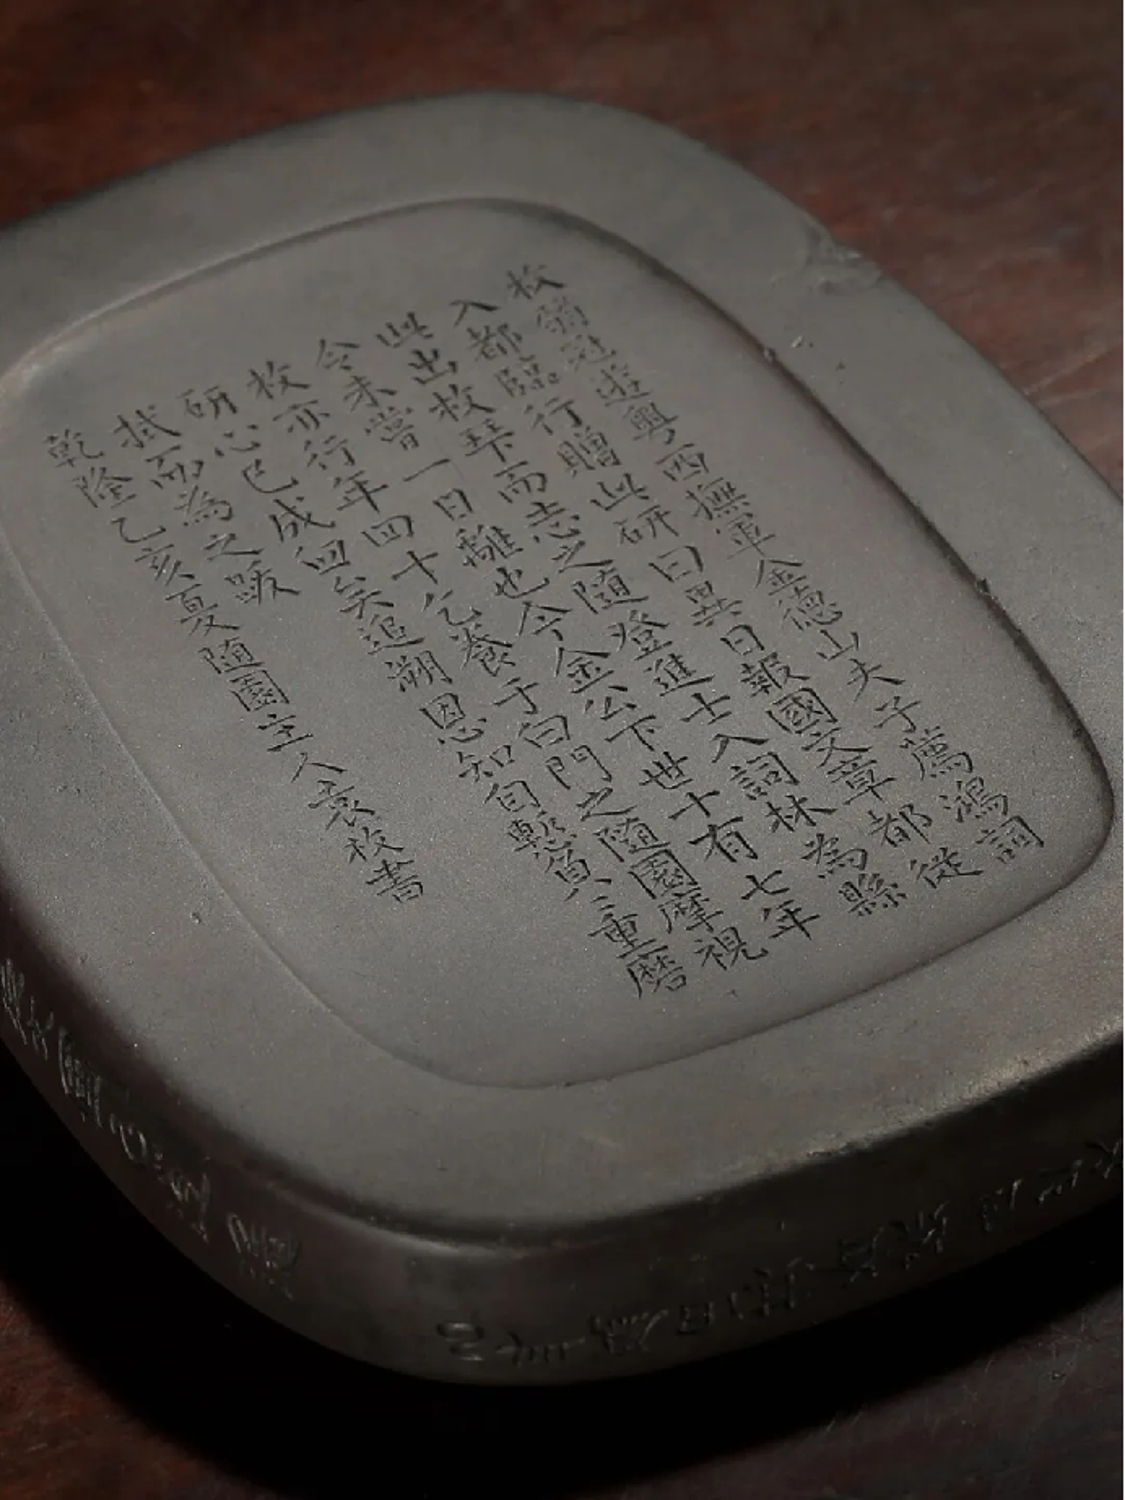 枚弱冠遊粵西撫軍金德山夫子薦鴻詞
入都臨行贈此研曰異日報國文章都從
此出枚拜而志之隨登進士入詞林為縣
令未嘗一日離也今金公下世十有七年
枚亦行年四十乞養于白門之隨園摩視
研心已成臼矣追溯恩知自慙負〻重磨
拭而為之跋
乾隆乙亥夏隨園主人袁枚書